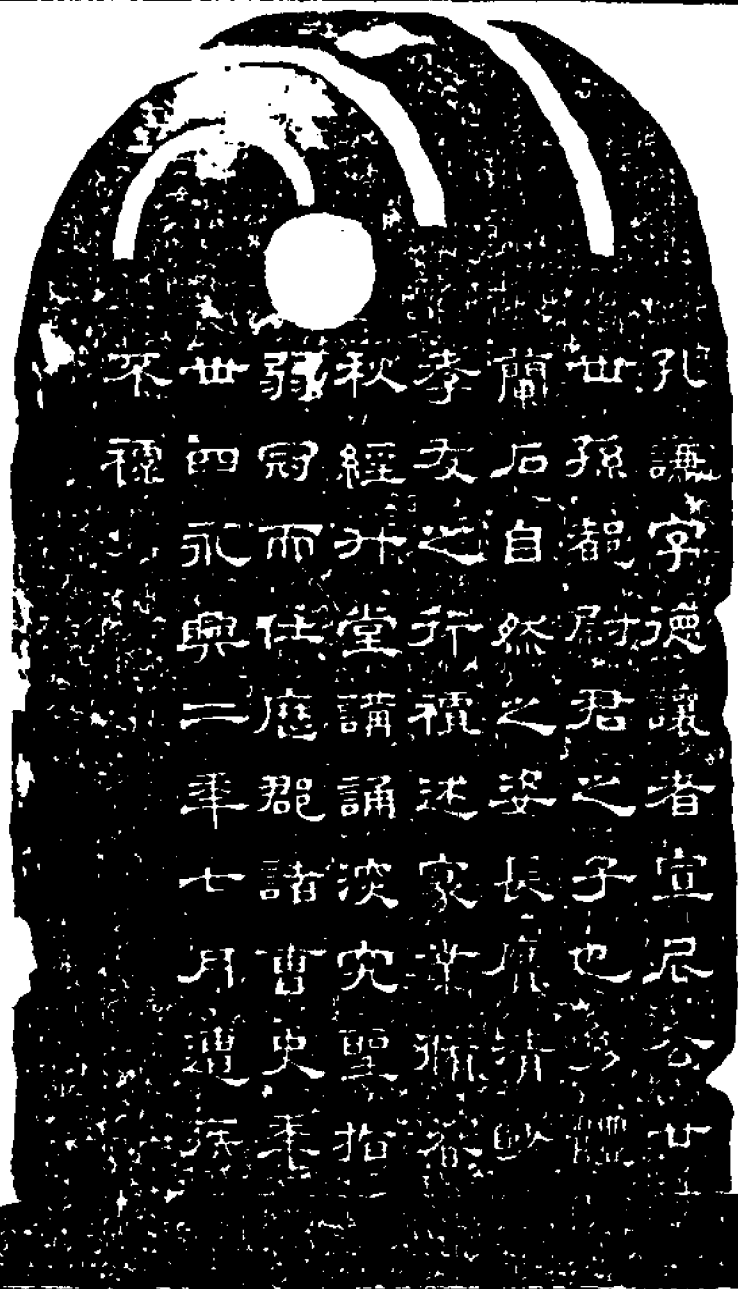 孔謙字德讓者宣尼公廿
世孫都尉君之子也幼體
蘭石自然之姿長膺清妙
孝友之行禶述家業脩春
秋經升堂講誦深究聖指
弱冠而仕歷郡諸曹史年
卅四永興二年七月遭疾
不祿